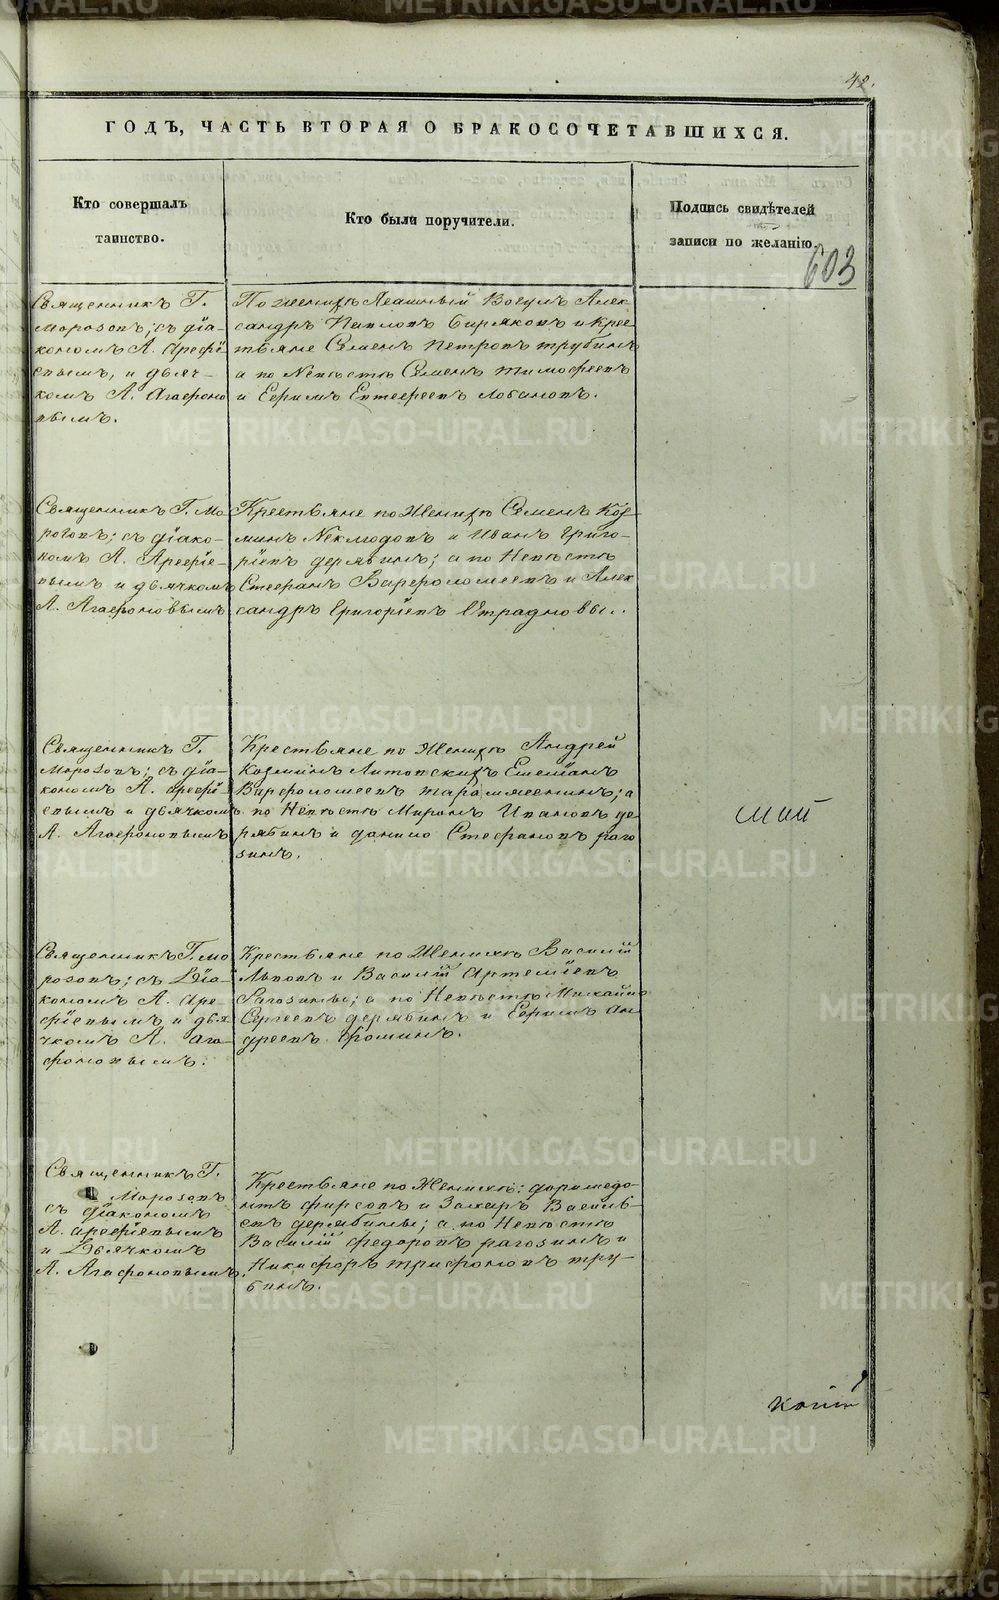 42.
ГОДЪ, ЧАСТЬ ВТОРАЯ О БРАКОСОЧЕТАВШИХСЯ.
Кто совершалъ
таинство.
Кто были поручители.
Подпись свидѣтелей
записи по желанію.
603
Священникъ Г.
Морозовъ; съ діа-
кономъ А. Арефіе-
вымъ, и дьяч-
комъ А. Агафоно
вымъ.
По женихѣ Ясашный Вогулъ Алек
сандръ Павловъ Бирюковъ и Крес
тьяне Семенъ Петровъ трубинъ
а по Невѣстѣ Семенъ тимофеевъ
и Ефимъ Евтефеевъ Лобановъ.
Священникъ Г. Мо
розовъ; съ діако-
номъ А. Арефіе-
вымъ и дьячкомъ
А. Агафоновымъ
Крестьяне по Женихѣ Семенъ Коз-
минъ Неклюдовъ и Иванъ Григо-
ріевъ дерябинъ; а по Невѣстѣ
Стефанъ Варфоломеевъ и Алек
сандръ Григоріевъ Страдновы.
Священникъ Г.
Морозовъ; съ діа-
кономъ А. Арефі
евымъ и дьячкомъ
А. Агафоновымъ
Крестьяне по Женихѣ Андрей
Козминъ Литовскихъ Емеліанъ
Варфоломеевъ ; а
по Невѣстѣ Миронъ Ивановъ де
рябинъ и данило Стефановъ раго
зинъ.
май
Священникъ Г. Мо
розовъ; съ Діа-
кономъ А. Аре-
фіевымъ и дья
чкомъ А. Ага-
фоновымъ.
Крестьяне по Женихѣ Василій
Львовъ и Василій Артеміевъ
Рагозины; а по Невѣстѣ Михайло
Сергеевъ дерябинъ и Ефимъ Ан
дреевъ Ерошинъ.
Священникъ Г.
Морозовъ
съ діакономъ
А. Арефіевымъ
и Дьячкомъ
А. Агафоновымъ.
Крестьяне по Женихѣ: доримедо-
нтъ фирсовъ и Захаръ Василь-
евъ дерябины; а по Невѣстѣ
Василій федоровъ рагозинъ и
Никифоръ трифоновъ тру-
бинъ.
копія
METRIKI.GASO-URAL.RU